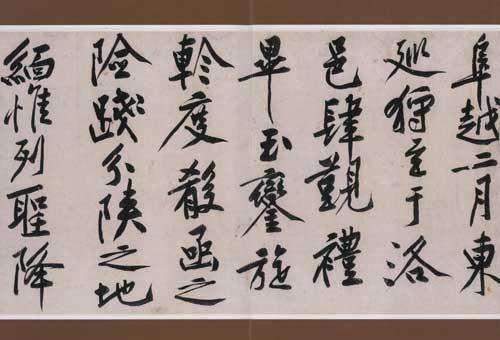 阜越二月東
巡狩至于洛
邑肆覲禮
畢玉鑾旋
軫度殽函之
險踐分陝之地
緬惟列聖降